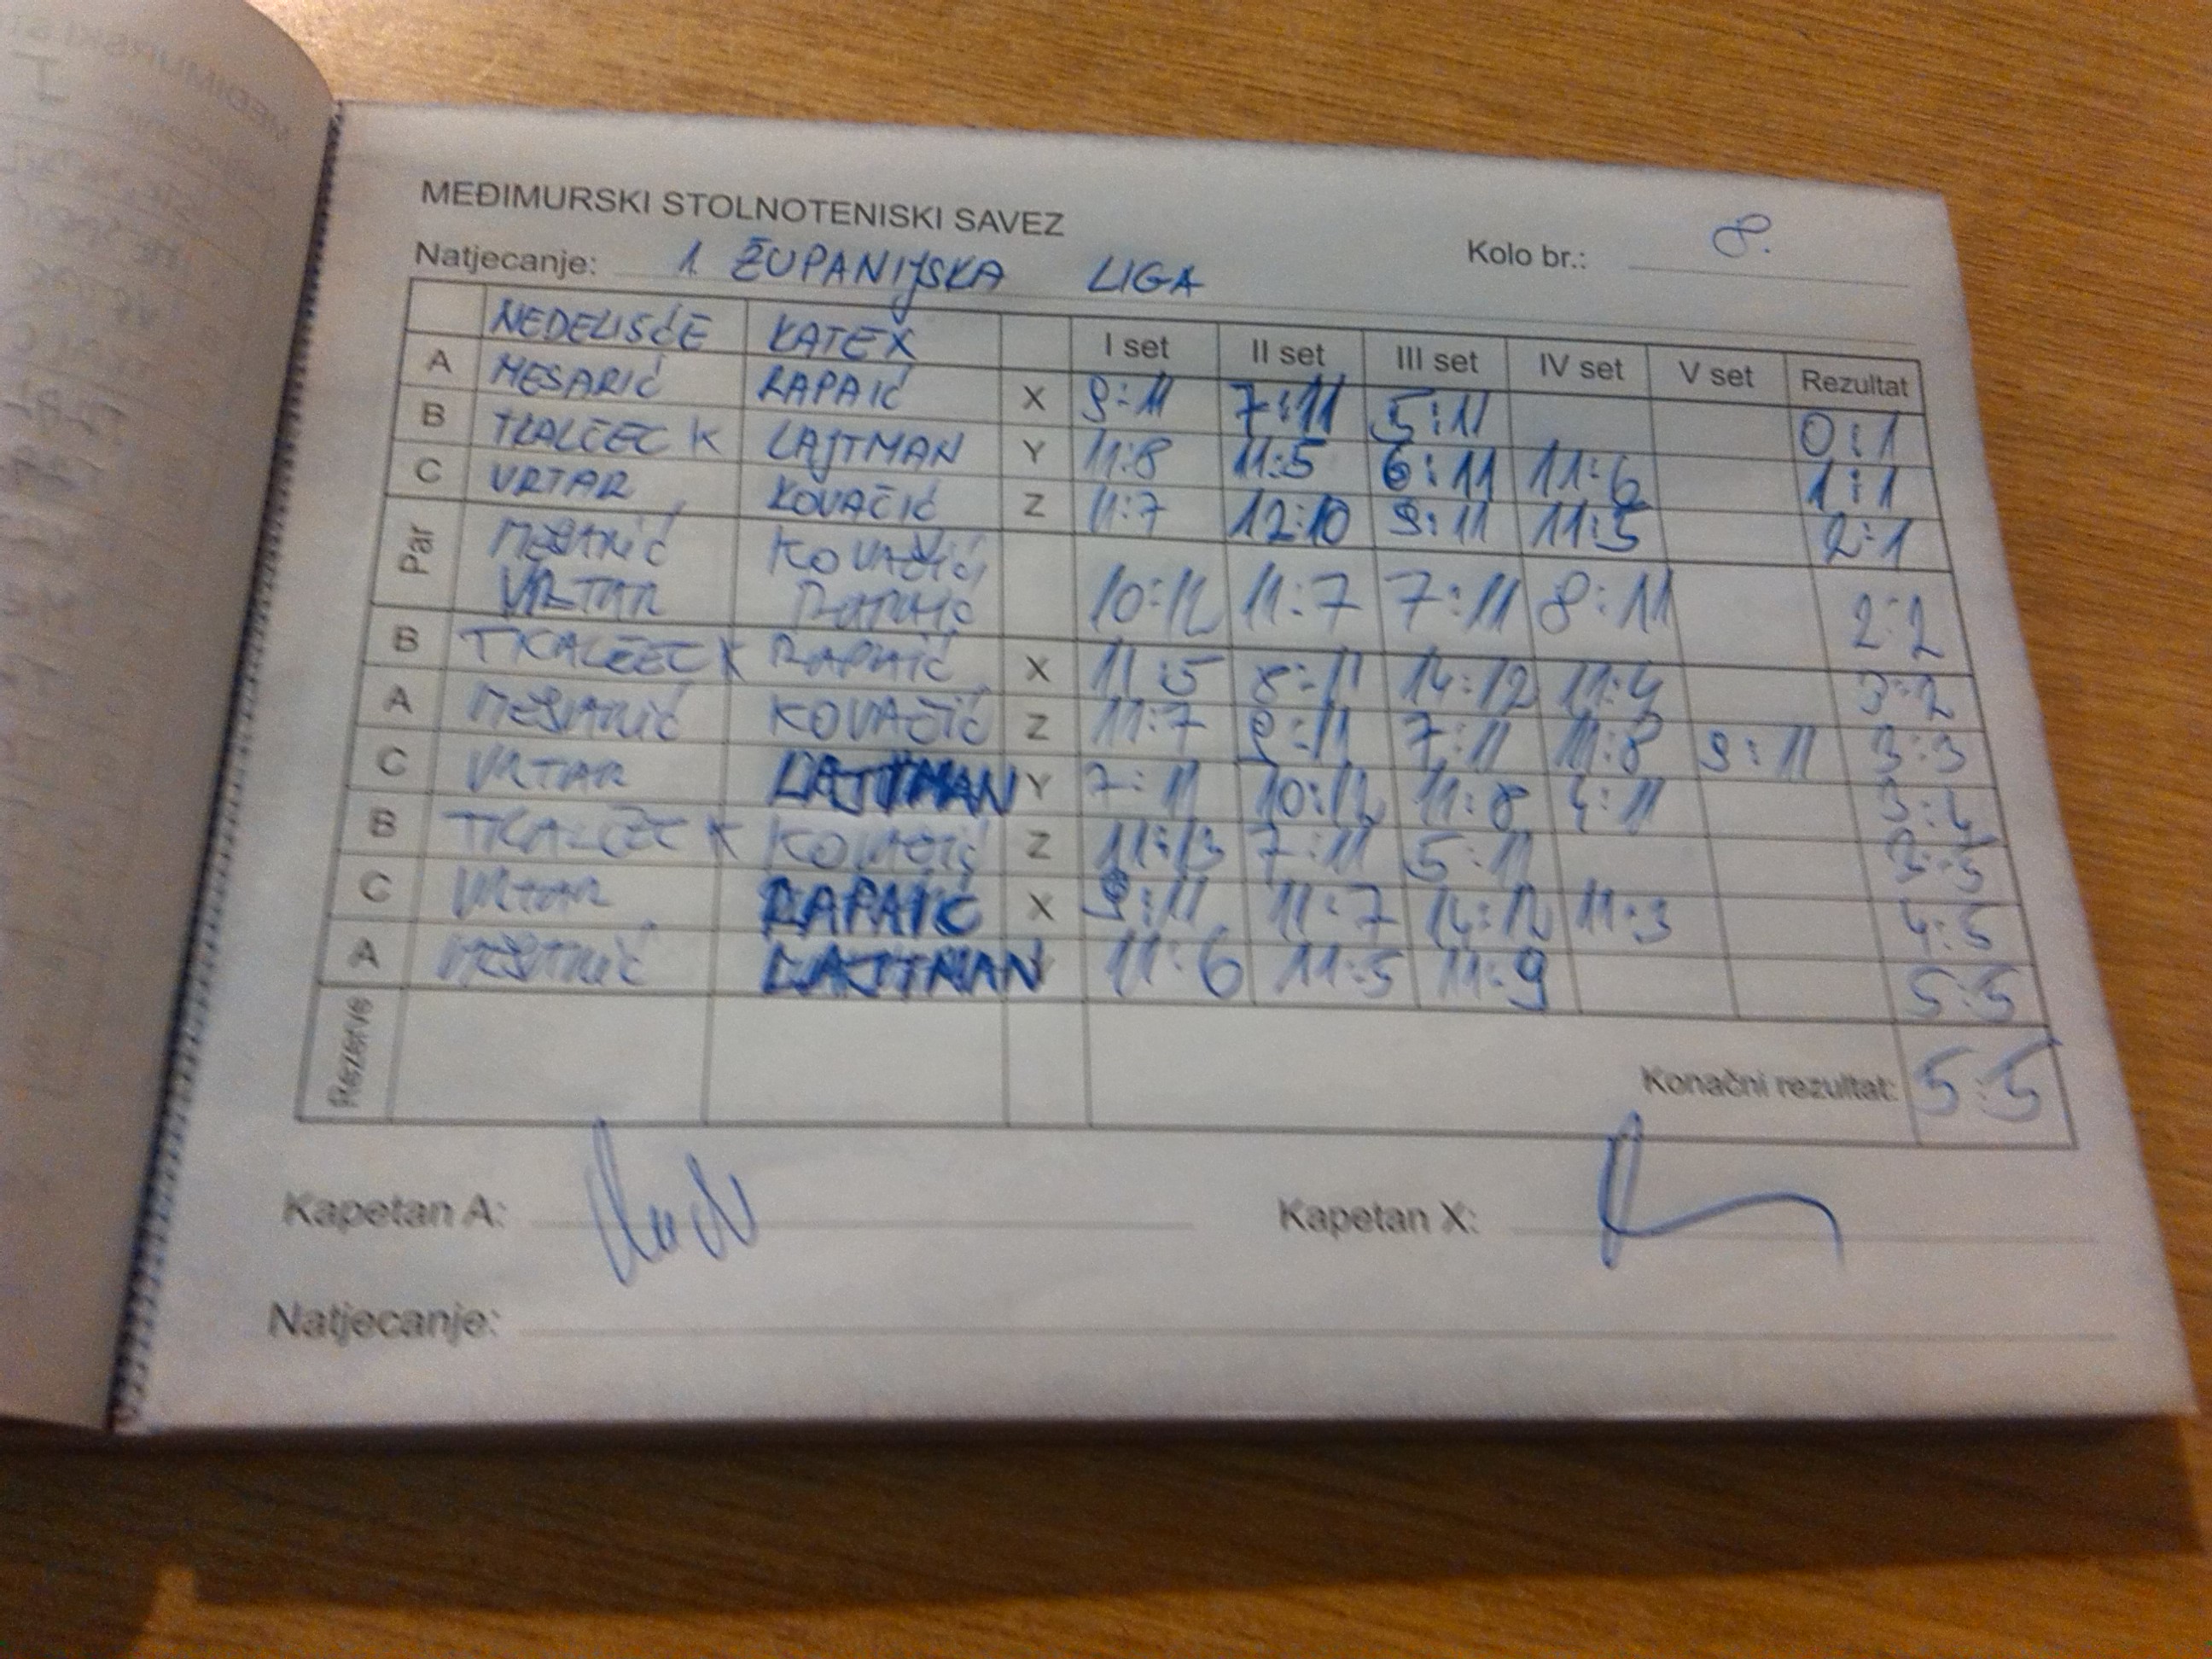 MEĐIMURSKI STOLNOTENISKI SAVEZ
Natjecanje: 1. ŽUPANIJSKA LIGA Kolo br.: 8.
NEDELIŠĆE KATEX I set II set III set IV set V set Rezultat
A MESARIĆ RAPAIĆ X 9:11 7:11 5:11 0:1
B TKALČEC K LAJTMAN Y 11:8 11:5 6:11 11:6 1:1
C VRTAR KOVAČIĆ Z 11:7 12:10 9:11 11:5 2:1
Par MESARIĆ KOVAČIĆ
VRTAR RAPAIĆ 10:12 11:7 7:11 8:11 2:2
B TKALČEC K RAPAIĆ X 11:5 8:11 14:12 11:4 3:2
A MESARIĆ KOVAČIĆ Z 11:7 9:11 7:11 11:8 9:11 3:3
C VRTAR LAJTMAN Y 7:11 10:12 11:8 4:11 3:4
B TKALČEC K KOVAČIĆ Z 11:13 7:11 5:11 3:5
C VRTAR RAPAIĆ X 9:11 11:7 14:12 11:3 4:5
A MESARIĆ LAJTMAN 11:6 11:5 11:9 5:5
Rezerve Konačni rezultat: 5:5
Kapetan A: Kapetan X:
Natjecanje: